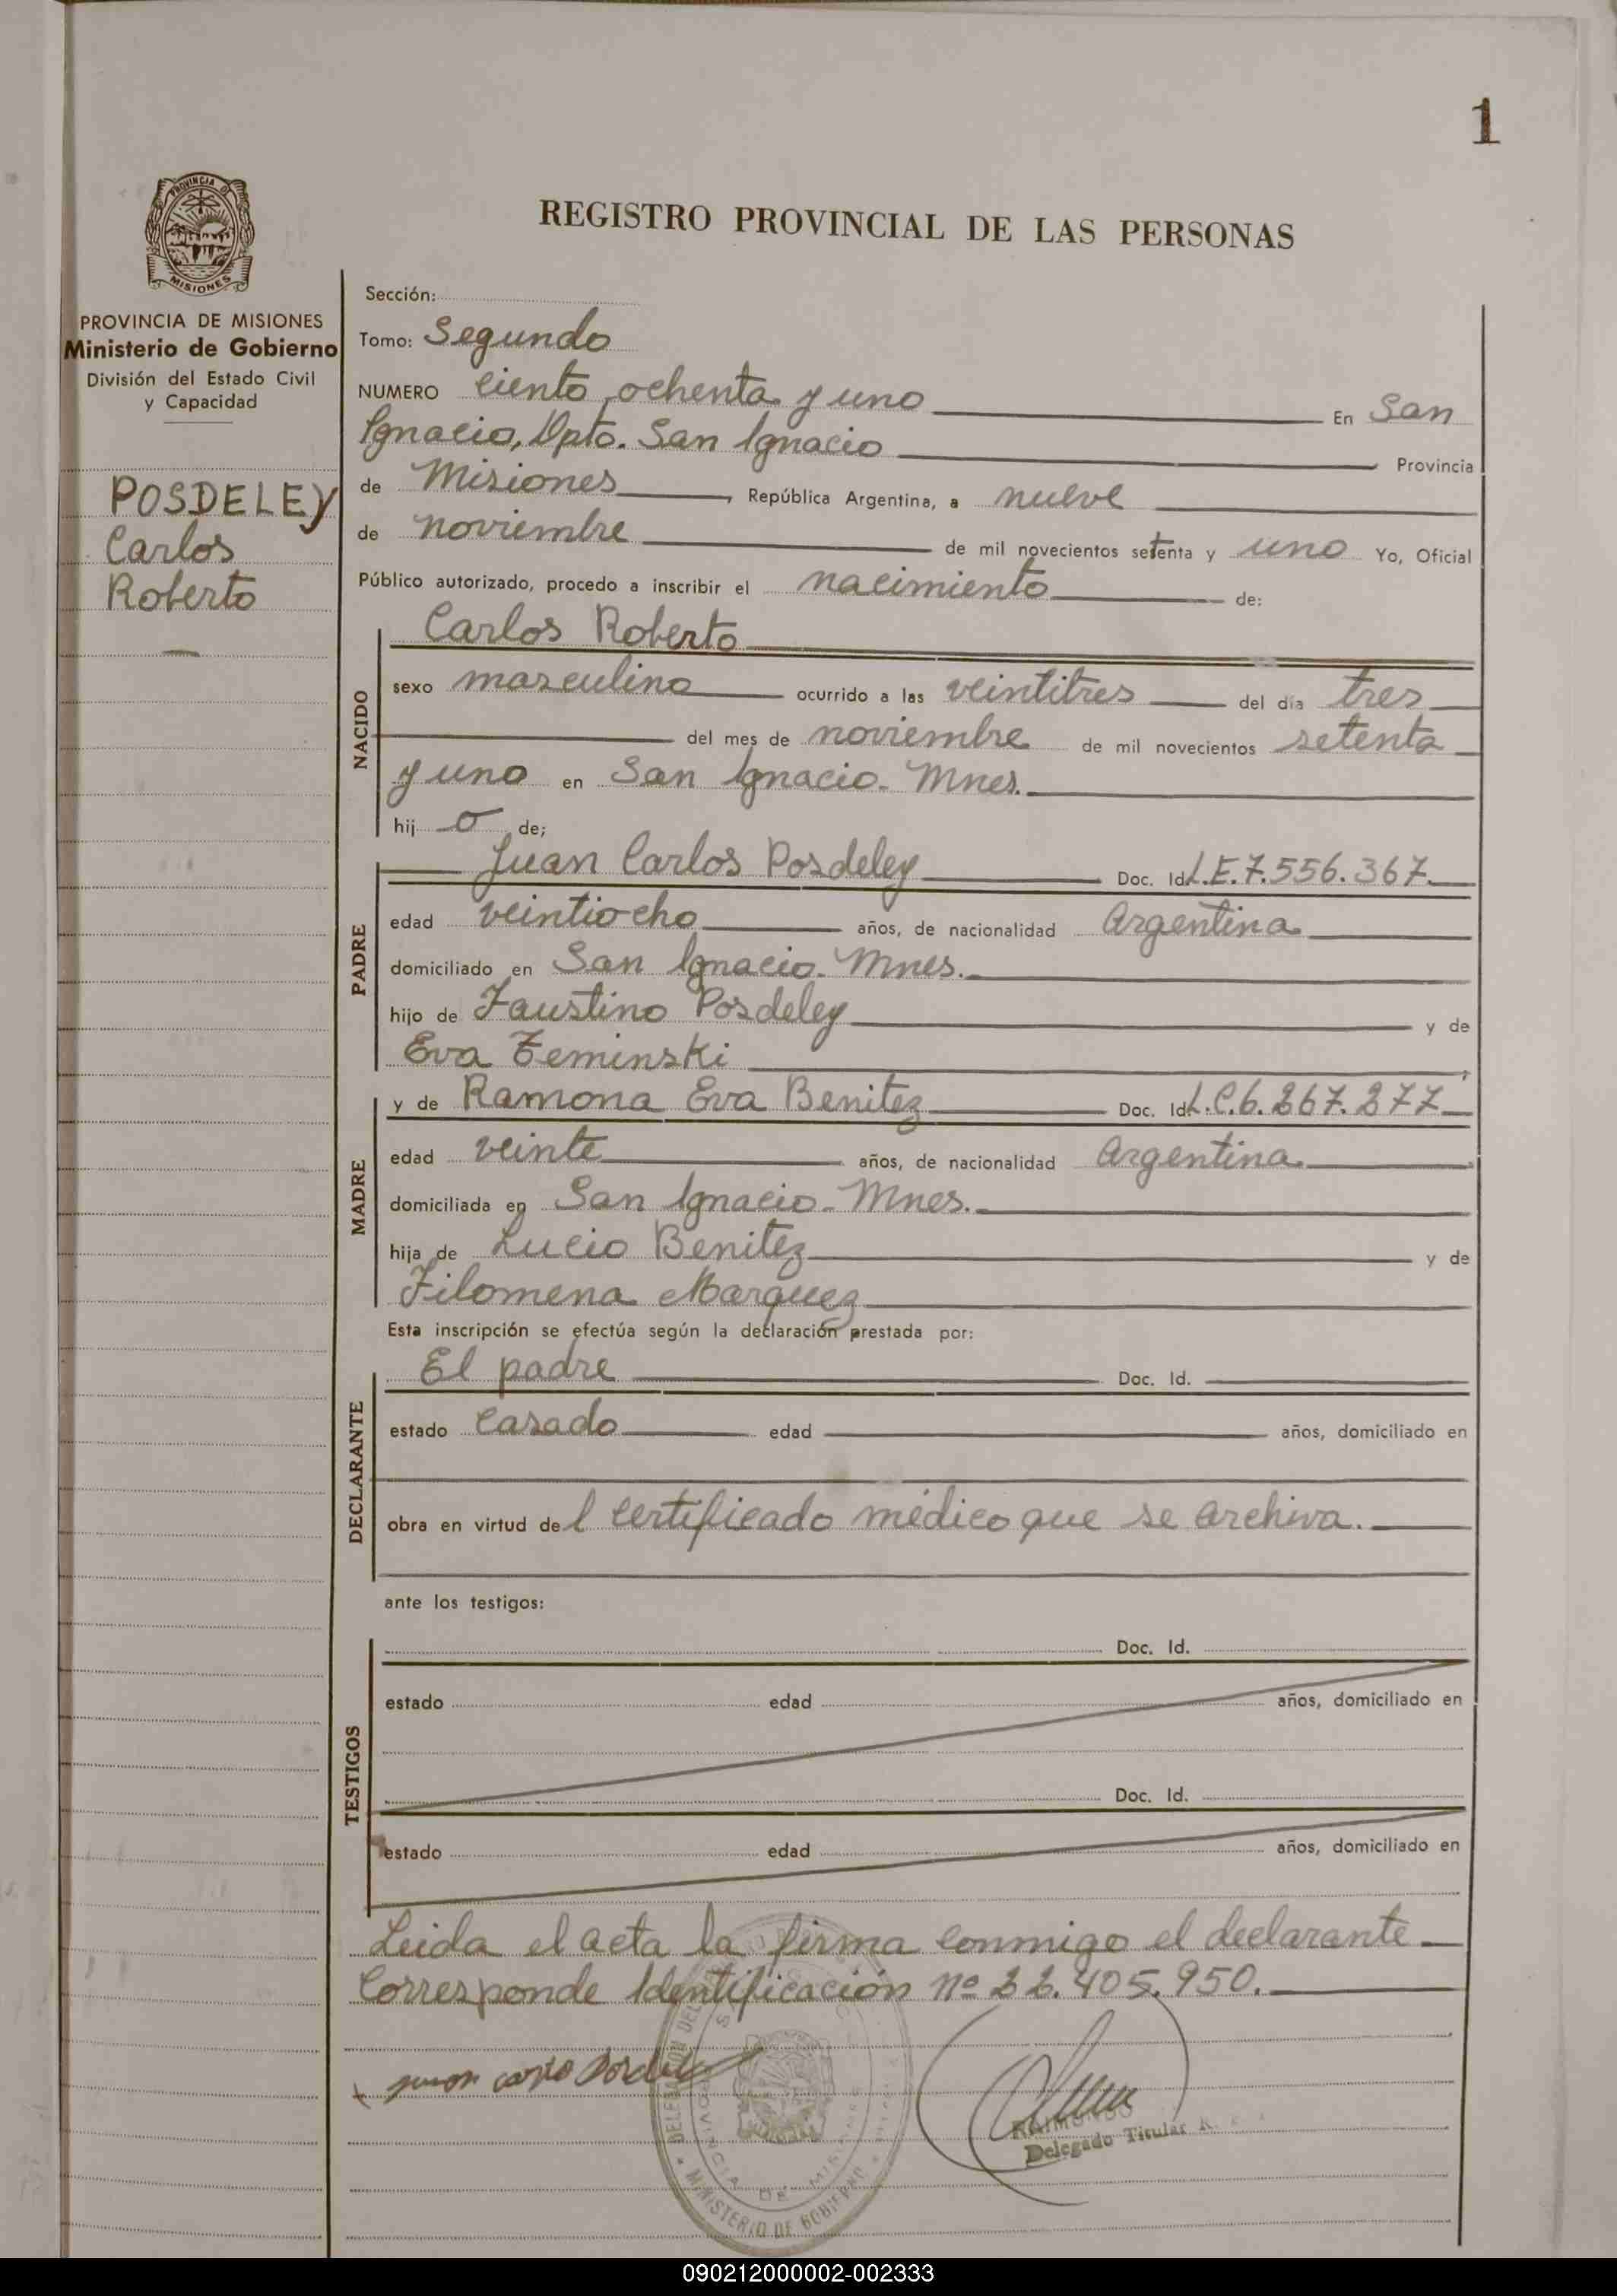 1
PROVINCIA DE
MISIONES
REGISTRO PROVINCIAL DE LAS PERSONAS
PROVINCIA DE MISIONES
Ministerio de Gobierno
División del Estado Civil
y Capacidad
POSDELEY
Carlos
Roberto
Sección:
Tomo: Segundo
NUMERO ciento ochenta y uno En San
Ignacio, Dpto. San Ignacio Provincia
de Misiones, República Argentina, a nueve
de noviembre de mil novecientos setenta y uno Yo, Oficial
Público autorizado, procedo a inscribir el nacimiento de:
NACIDO
Carlos Roberto
sexo masculino ocurrido a las veintitres del día tres
del mes de noviembre de mil novecientos setenta
y uno en San Ignacio. Mnes.
hij o de;
PADRE
Juan Carlos Posdeley Doc. Id. L.E.7.556.367.
edad veintiocho años, de nacionalidad Argentina
domiciliado en San Ignacio. Mnes.
hijo de Faustino Posdeley y de
Eva Zeminski
MADRE
y de Ramona Eva Benitez Doc. Id. L.C.6.267.277
edad veinte años, de nacionalidad Argentina.
domiciliada en San Ignacio. Mnes.
hija de Lucio Benitez y de
Filomena Marquez
Esta inscripción se efectúa según la declaración prestada por:
DECLARANTE
El padre Doc. Id.
estado casado edad años, domiciliado en
obra en virtud del certificado médico que se archiva.
ante los testigos:
TESTIGOS
Doc. Id.
estado edad años, domiciliado en
Doc. Id.
estado edad años, domiciliado en
Leida el acta la firma conmigo el declarante
Corresponde Identificación nº 22.405.950.
MINISTERIO DE GOBIERNO
Delegado Titular
090212000002-002333